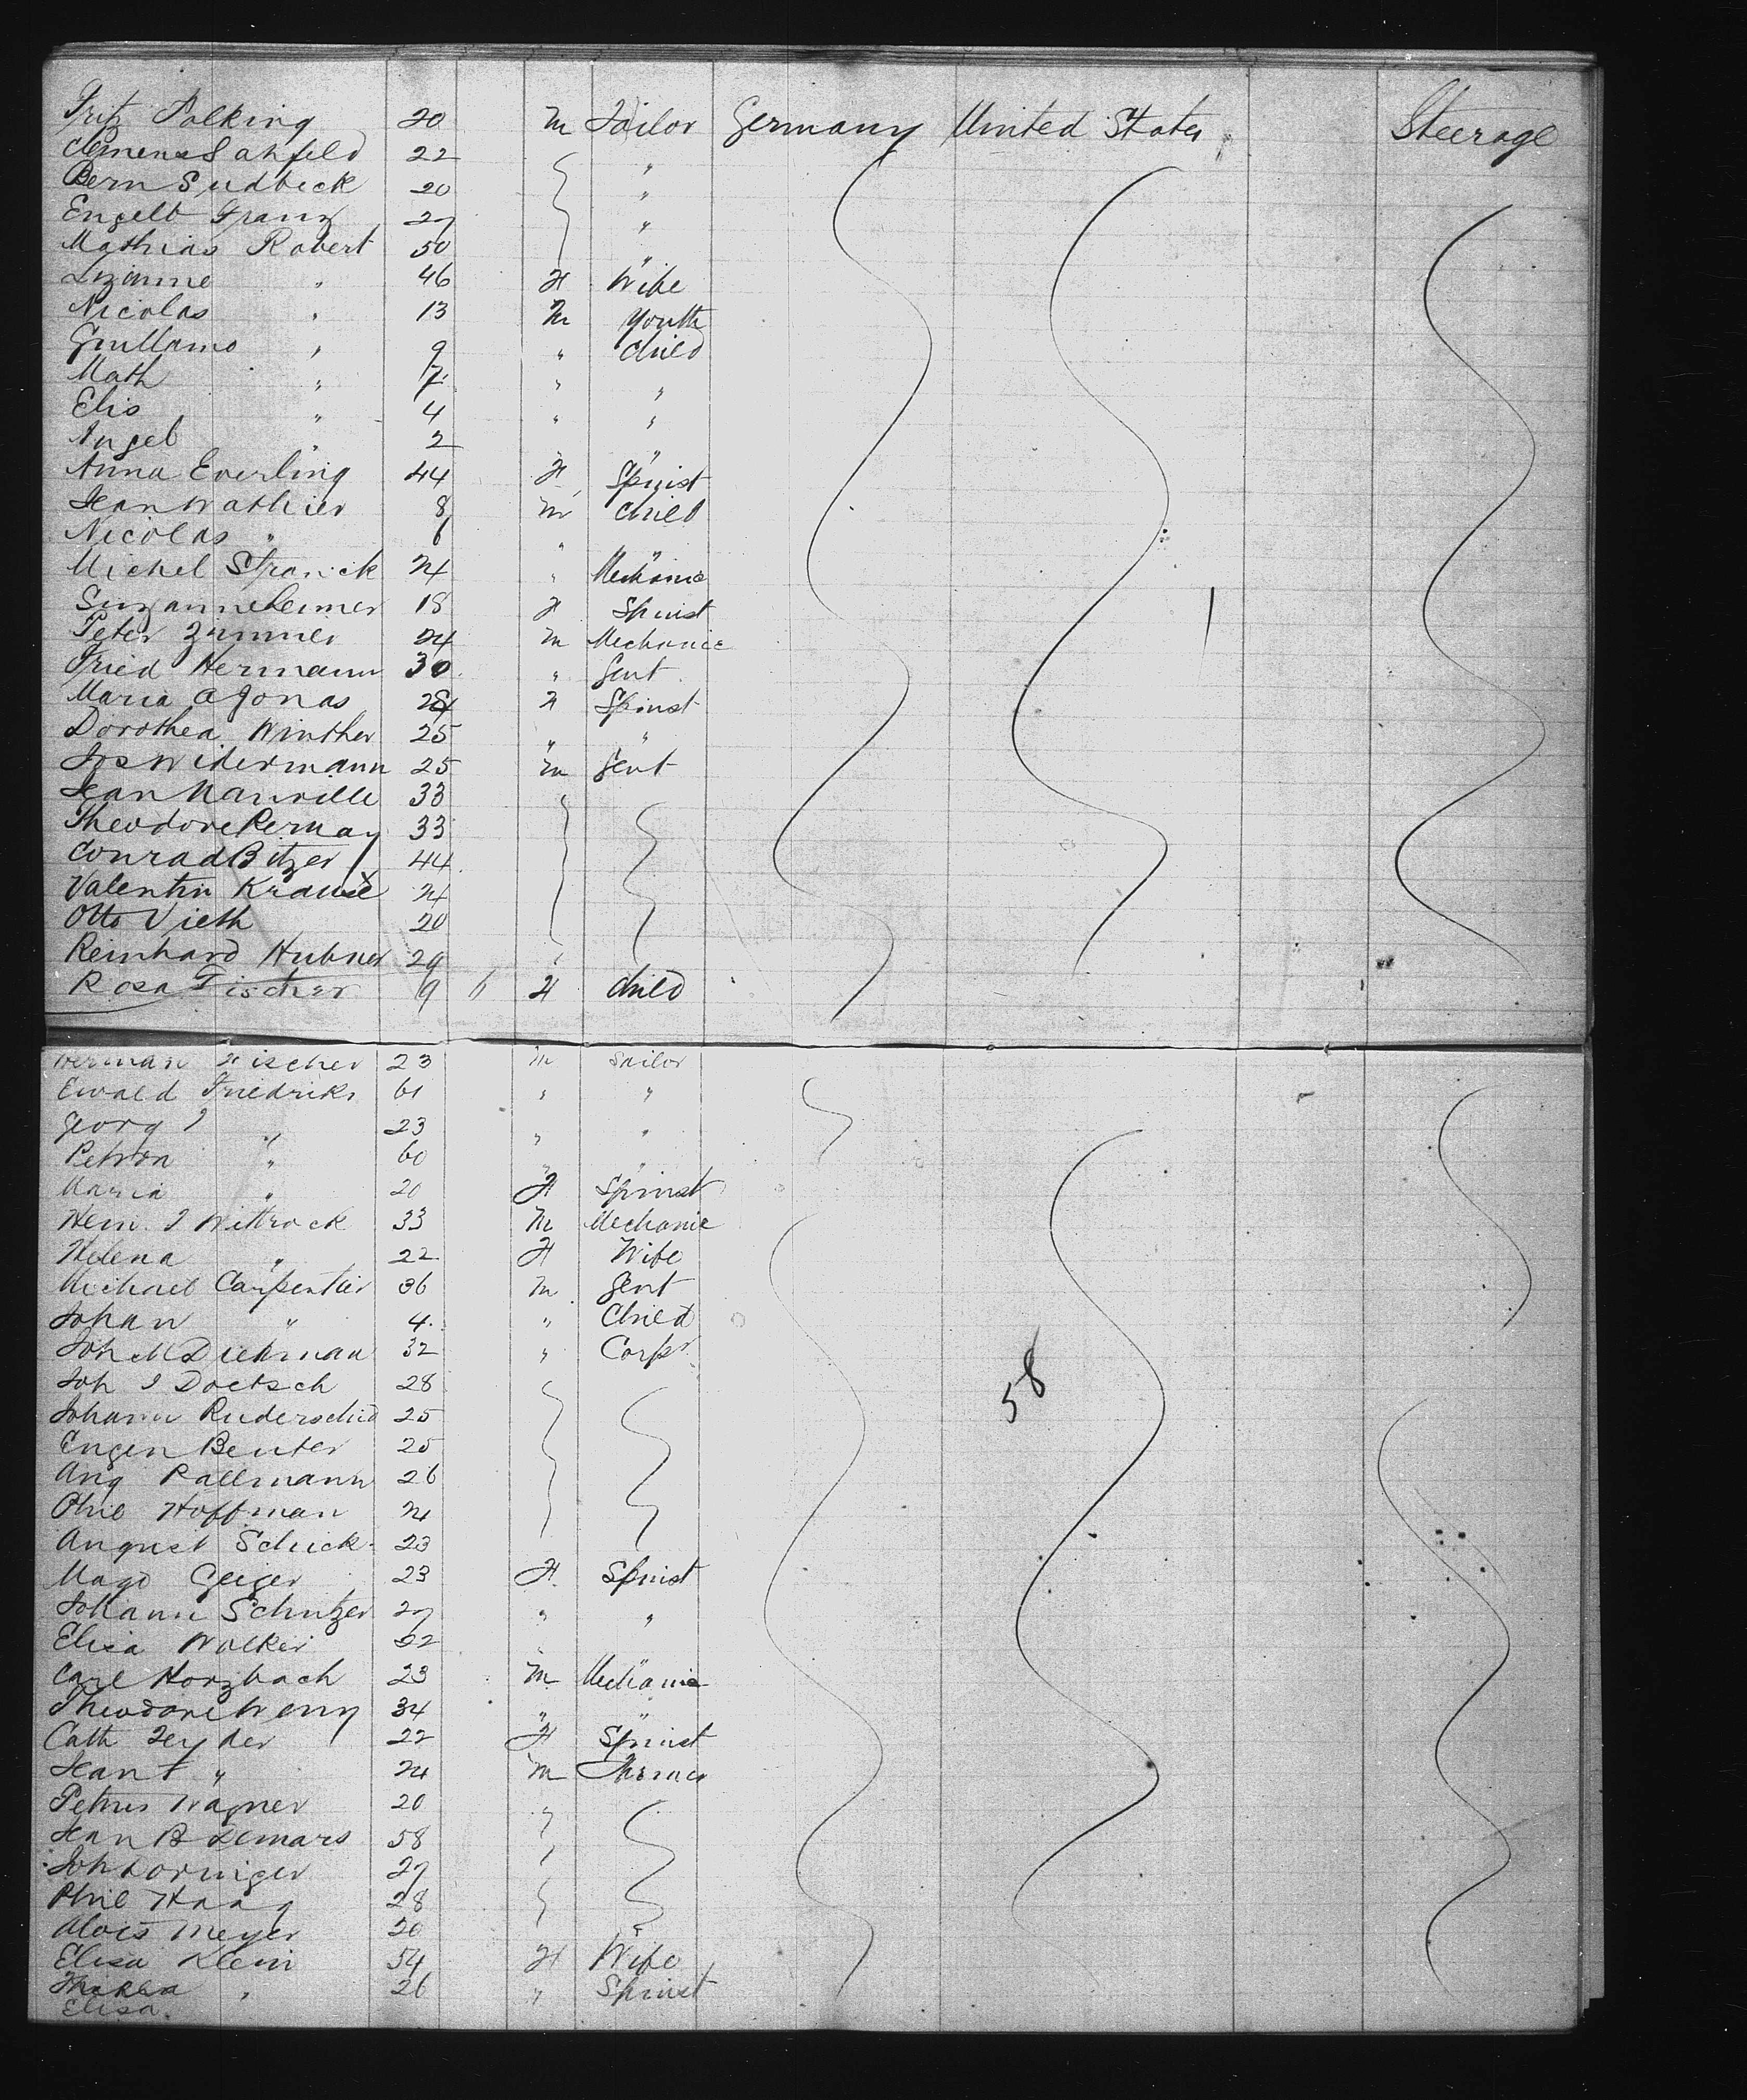 Fritz Polking 20 m Tailor Germany United States Steerage
Clemens Sahfeld 22 "
Bern Sudbeck 20 "
Engelb Franz 27 "
Mathias Robert 50 "
Suzanne " 46 F Wife
Nicolas " 13 M Youth
Guillamo " 9 " Child
Math " 7 " "
Elis " 4 " "
Angel " 2 " "
Anna Everling 44 F Spinst
Jean Wathier 8 m Child
Nicolas " 6 " "
Michel Franck 24 " Mechanic
Suzanne Leimer 18 F Spinst
Peter Zimmer 24 m Mechanic
Fried Hermann 30 " Gent
Maria A Jonas 24 F Spinst
Dorothea Winther 25 " "
Jos Widermann 25 m Gent
Jean Manville 33
Theodore Pernay 33
Conrad Bitzer 44
Valentin Krause 24
Otto Vieth 20
Reinhard Hubner 29
Rosa Fischer 9 6 F Child
Herman Fischer 23 m Sailor
Ewald Friedriks 61 " "
Georg J " 23 " "
Petron " 60 " "
Maria " 20 F Spinst
Hein. J Wittrock 33 M Mechanic
Helena " 22 F Wife
Michael Carpentier 36 m Gent
Johan " 4 " Child
Joh M Diekman 32 " Carpr
Joh J Doetsch 28 58
Johann Ruderscheid 25
Eugen Beuter 25
Aug Rallmann 26
Phil Hoffman 24
August Schick 23
Magd Geiger 23 F Spinst
Johann Schnitzer 27 " "
Elisa Walker 22 " "
Carl Horzbach 23 m Mechanic
Theodore Weny 34 " "
Cath Feyder 22 F Spinst
Jean F " 24 m Farmer
Petrus Wagner 20
Jean B Demars 58
Joh Dorniger 27
Phil Haag 28
Alois Meyer 20
Elisa Klein 54 F Wife
Thekla " 26 " Spinst
Elisa